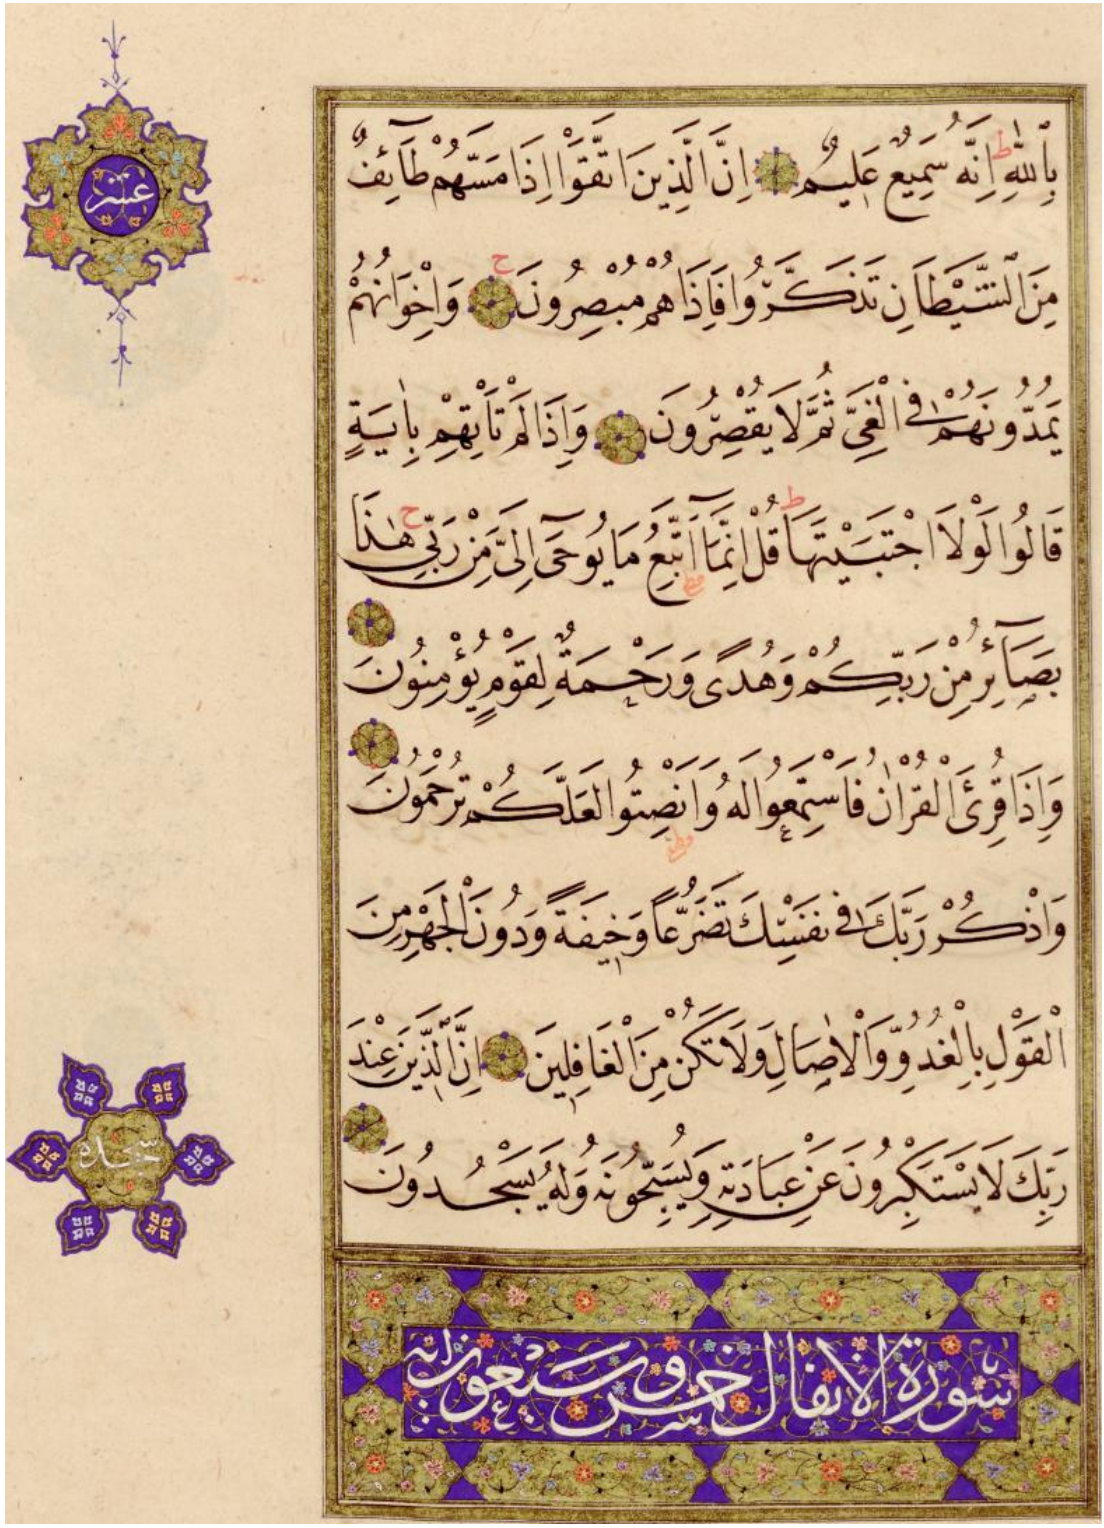 بِاللّٰهِ اِنَّهُ سَمِيعٌ عَلِيمٌ اِنَّ الَّذِينَ اتَّقَوْا اِذَا مَسَّهُمْ طَآئِفٌ
مِنَ الشَّيْطَانِ تَذَكَّرُوا فَاِذَا هُمْ مُبْصِرُونَ وَاِخْوَانُهُمْ
يَمُدُّونَهُمْ فِى الْغَىِّ ثُمَّ لَا يُقْصِرُونَ وَاِذَا لَمْ تَأْتِهِمْ بِاٰيَةٍ
قَالُوا لَوْلَا اجْتَبَيْتَهَا قُلْ اِنَّمَآ اَتَّبِعُ مَا يُوحٰٓى اِلَىَّ مِنْ رَبِّى هٰذَا
بَصَآئِرُ مِنْ رَبِّكُمْ وَهُدًى وَرَحْمَةٌ لِقَوْمٍ يُؤْمِنُونَ
وَاِذَا قُرِئَ الْقُرْاٰنُ فَاسْتَمِعُوا لَهُ وَاَنْصِتُوا لَعَلَّكُمْ تُرْحَمُونَ
وَاذْكُرْ رَبَّكَ فِى نَفْسِكَ تَضَرُّعًا وَخِيفَةً وَدُونَ الْجَهْرِ مِنَ
الْقَوْلِ بِالْغُدُوِّ وَالْاٰصَالِ وَلَا تَكُنْ مِنَ الْغَافِلِينَ اِنَّ الَّذِينَ عِنْدَ
رَبِّكَ لَا يَسْتَكْبِرُونَ عَنْ عِبَادَتِهِ وَيُسَبِّحُونَهُ وَلَهُ يَسْجُدُونَ
سورة الانفال خمس وسبعون اية
عشر
سجده